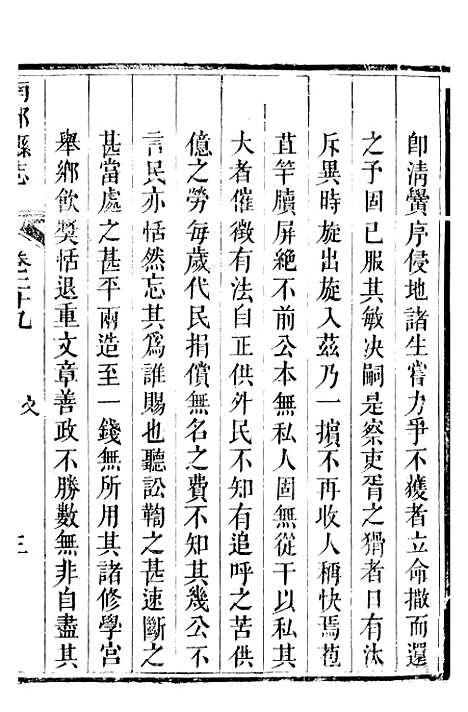 卽清黌序侵地諸生嘗力爭不獲者立命撤而還
之予固已服其敏决嗣是察吏胥之猾者日有汰
斥異時旋出旋入茲乃一擯不再收人稱快焉苞
苴竿牘屏絶不前公本無私人固無從干以私其
大者催徵有法自正供外民不知有追呼之苦供
億之勞每歲代民捐償無名之費不知其幾公不
言民亦恬然忘其爲誰賜也聽訟鞫之甚速斷之
甚當處之甚平兩造至一錢無所用其諸修學宫
舉鄉飲奬恬退重文章善政不勝數無非自盡其
縣志
卷二十九
文
三